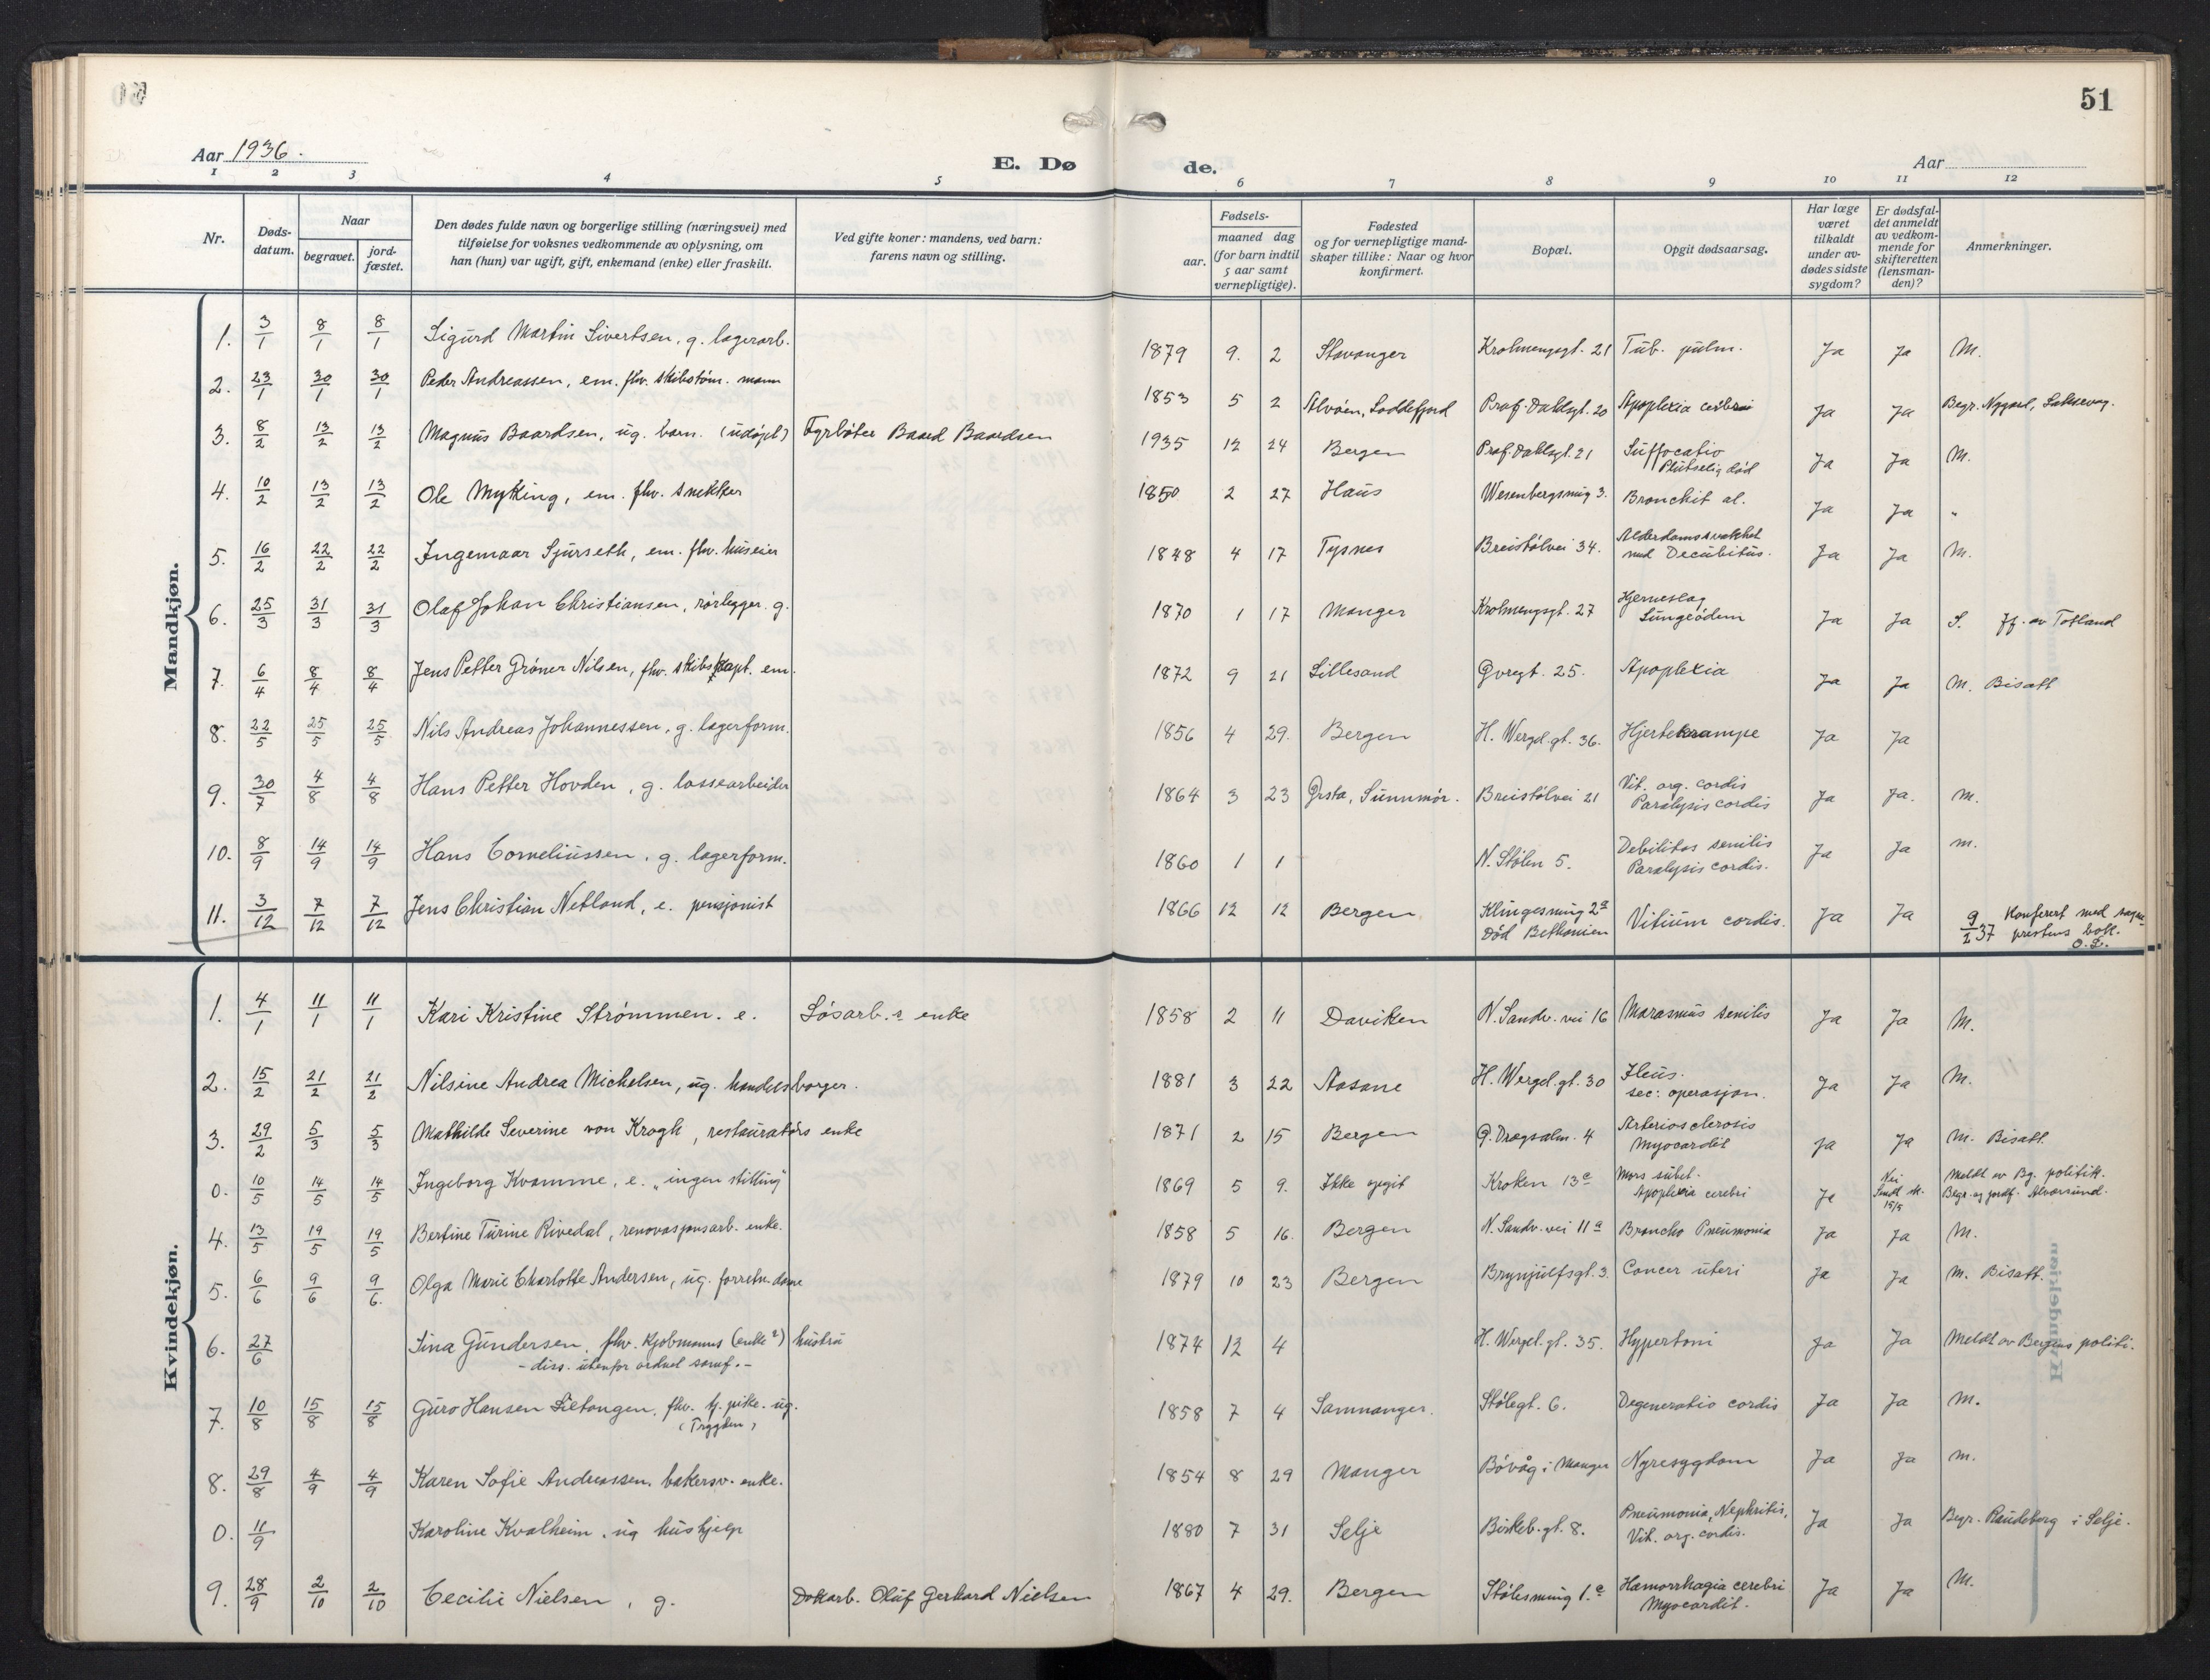 51
Aar 1936.
E. Døde.
Aar
1 2 3 4 5 6 7 8 9 10 11 12
Nr.
Døds-
datum.
Naar
begravet.
jord-
fæstet.
Den dødes fulde navn og borgerlige stilling (næringsvei) med
tilføielse for voksnes vedkommende av oplysning, om
han (hun) var ugift, gift, enkemand (enke) eller fraskilt.
Ved gifte koner: mandens, ved barn:
farens navn og stilling.
Fødsels-
aar.
maaned dag
(for barn indtil
5 aar samt
vernepligtige).
Fødested
og for vernepligtige mand-
skaper tillike: Naar og hvor
konfirmert.
Bopæl.
Opgit dødsaarsag.
Har læge
været
tilkaldt
under av-
dødes sidste
sygdom?
Er dødsfal-
det anmeldt
av vedkom-
mende for
skifteretten
(lensman-
den)?
Anmerkninger.
Mandkjøn.
1. 3/1 8/1 8/1 Sigurd Martin Sivertsen, g. lagerarb. 1879 9. 2 Stavanger Krohnengsgt. 21 Tub. pulm. Ja Ja M.
2. 23/1 30/1 30/1 Peder Andreassen, em. fhv. skibstøm. mann 1853 5 2 Alvøen, Loddefjord Prof. Dahlsgt. 20 Apoplexia cerebri Ja Ja Begr. Nygård, Laksevåg.
3. 8/2 13/2 13/2 Magnus Baardsen, ug. barn. (udøpt) Fyrbøter Baard Baardsen 1935 12 24 Bergen Prof. Dahlsgt. 21 Suffocatio
Plutselig død Ja Ja M.
4. 10/2 13/2 13/2 Ole Myking, em. fhv. snekker 1850 2 27 Haus Wesenbergsmug 3. Bronchit al. Ja Ja "
5. 16/2 22/2 22/2 Ingemaar Sjurseth, em. fhv. huseier 1848 4 17 Tysnes Breistølvei 34. Alderdomssvakhet
med Decubitus. Ja Ja M.
6. 25/3 31/3 31/3 Olaf Johan Christiansen, rørlegger. g. 1870 1 17 Manger Krohnengsgt. 27 Hjerneslag
Lungeødem Ja Ja S. Jf. av Totland
7. 6/4 8/4 8/4 Jens Petter Grøner Nilsen, fhv. skibskapt. em. 1872 9 21 Lillesand Øvregt. 25. Apoplexia Ja Ja M. Bisatt
8. 22/5 25/5 25/5 Nils Andreas Johannessen, g. lagerform. 1856 4 29. Bergen H. Wergel.gt. 36. Hjertekrampe Ja Ja
9. 30/7 4/8 4/8 Hans Petter Hovden, g. lossearbeider 1864 3 23 Ørsta, Sunnmør. Breistølvei 21 Vit. org. cordis
Paralysis cordis Ja Ja. M.
10. 8/9 14/9 14/9 Hans Corneliussen, g. lagerform. 1860 1 1 N. Stølen 5. Debilitas senilis
Paralysis cordis. Ja Ja M.
11. 3/12 7/12 7/12 Jens Christian Netland, e. pensjonist 1866 12 12 Bergen Klingesmug 2a
Død Bethanien Vitium cordis. Ja Ja 9/2 37 Konferert med sogne-
prestens bok.
O.L.
Kvindekjøn.
1. 4/1 11/1 11/1 Kari Kristine Strømmen. e. Løsarb.s enke 1858 2 11 Daviken N. Sandv. vei 16 Marasmus senilis Ja Ja M.
2. 15/2 21/2 21/2 Nilsine Andrea Michelsen, ug. handelsborger. 1881 3 22 Aasane H. Wergel.gt. 30 Ileus.
sec: operasjon. Ja Ja M.
3. 29/2 5/3 5/3 Mathilde Severine von Krogh, restauratørs enke 1871 2 15 Bergen Ø. Dragsalm. 4 Arteriosclerosis
Myocardit Ja Ja M. Bisatt
0. 10/5 14/5 14/5 Ingeborg Kvamme, e. "ingen stilling" 1869 5 9. Ikke opgit Kroken 13c Mors subit.
Apoplexia cerebri Ja Nei
15/5 Meldt av Bg. politik.
Begr. og jordf. Alversund.
4. 13/5 19/5 19/5 Bertine Turine Rivedal, renovasjonsarb. enke. 1858 5 16. Bergen N. Sandv. vei 11a Broncho Pneumonia Ja Ja M.
5. 6/6 9/6 9/6. Olga Marie Charlotte Andersen, ug. forretn. dame 1879 10 23 Bergen Brynjulfsgt. 3. Cancer uteri Ja Ja M. Bisatt.
6. 27/6 Sina Gundersen, fhv. kjøbmanns (enke?) hustru
- diss. utenfor ordnet samf. - 1874 12 4 H. Wergel.gt. 35. Hypertoni Ja Ja Meldt av Bergens politi.
7. 10/8 15/8 15/8 Guro Hansen Liltongen, fhv. tj. pike. ug.
(Trygden) 1858 7 4 Samnanger. Stølegt. 6. Degeneratio cordis Ja Ja M.
8. 29/8 4/9 4/9 Karen Sofie Andreassen, bakersv. enke. 1854 8 29 Manger Bøvåg i Manger Nyresygdom Ja Ja M.
0. 11/9 Karoline Kvalheim, ug hushjelp 1880 7 31 Selje Birkeb.gt. 8. Pneumonia, Nephritis,
Vit. org. cordis. Ja Ja Begr. Raudeberg i Selje.
9. 28/9 2/10 2/10 Cecilie Nielsen, g. Dokarb. Oluf Gerhard Nielsen 1867 4 29. Bergen Stølesmug 1.c Hæmorrhagia cerebri
Myocardit. Ja Ja M.